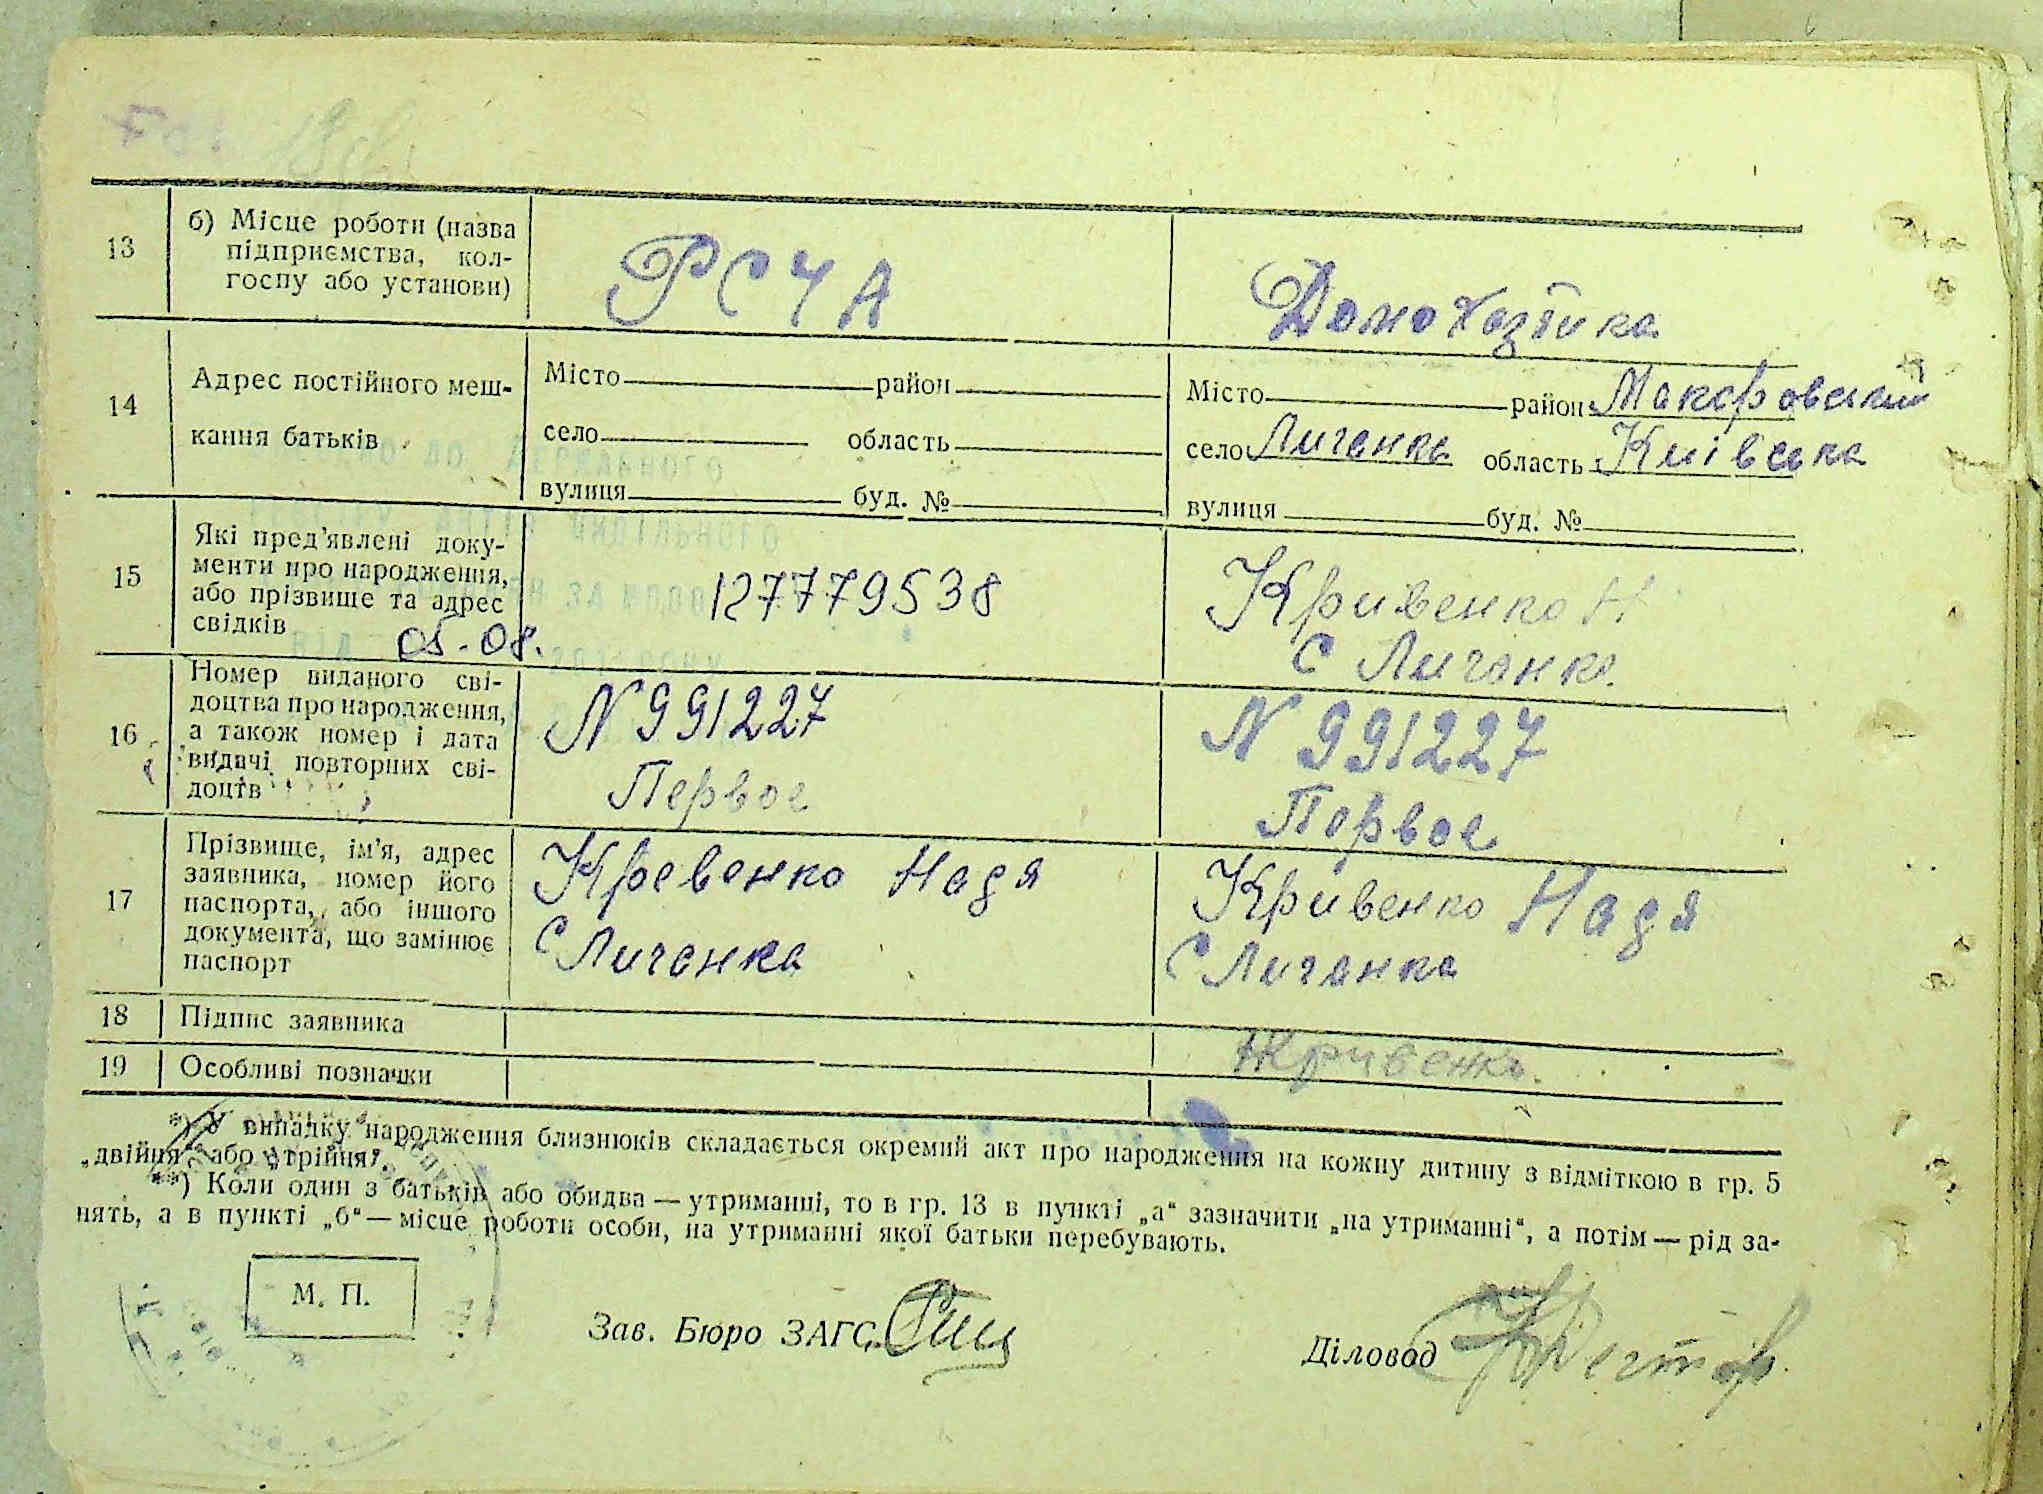 13
б) Місце роботи (назва
підприємства, кол-
госпу або установи)
РСЧА
Домохазяйка
14
Адрес постійного меш-
кання батьків
Місто район
село область
вулиця буд. №
Місто район Макаровский
село Личанка область Київська
вулиця буд. №
15
Які пред'явлені доку-
менти про народження,
або прізвище та адрес
свідків
05-08.
127779538
Кривенко Н
С Личанка
16
Номер виданого сві-
доцтва про народження,
а також номер і дата
видачі повторних сві-
доцтв
N 991227
Первое
N 991227
Первое
17
Прізвище, ім'я, адрес
заявника, номер його
паспорта, або іншого
документа, що замінює
паспорт
Кревенко Надя
С Личанка
Кривенко Надя
С Личанка
18
Підпис заявника
Кривенко
19
Особливі позначки
*) У випадку народження близнюків складається окремий акт про народження на кожну дитину з відміткою в гр. 5
„двійня" або „трійця".
**) Коли один з батьків або обидва — утриманні, то в гр. 13 в пункті „а" зазначити „на утриманні", а потім — рід за-
нять, а в пункті „б" — місце роботи особи, на утриманні якої батьки перебувають.
М. П.
Зав. Бюро ЗАГС
Діловод